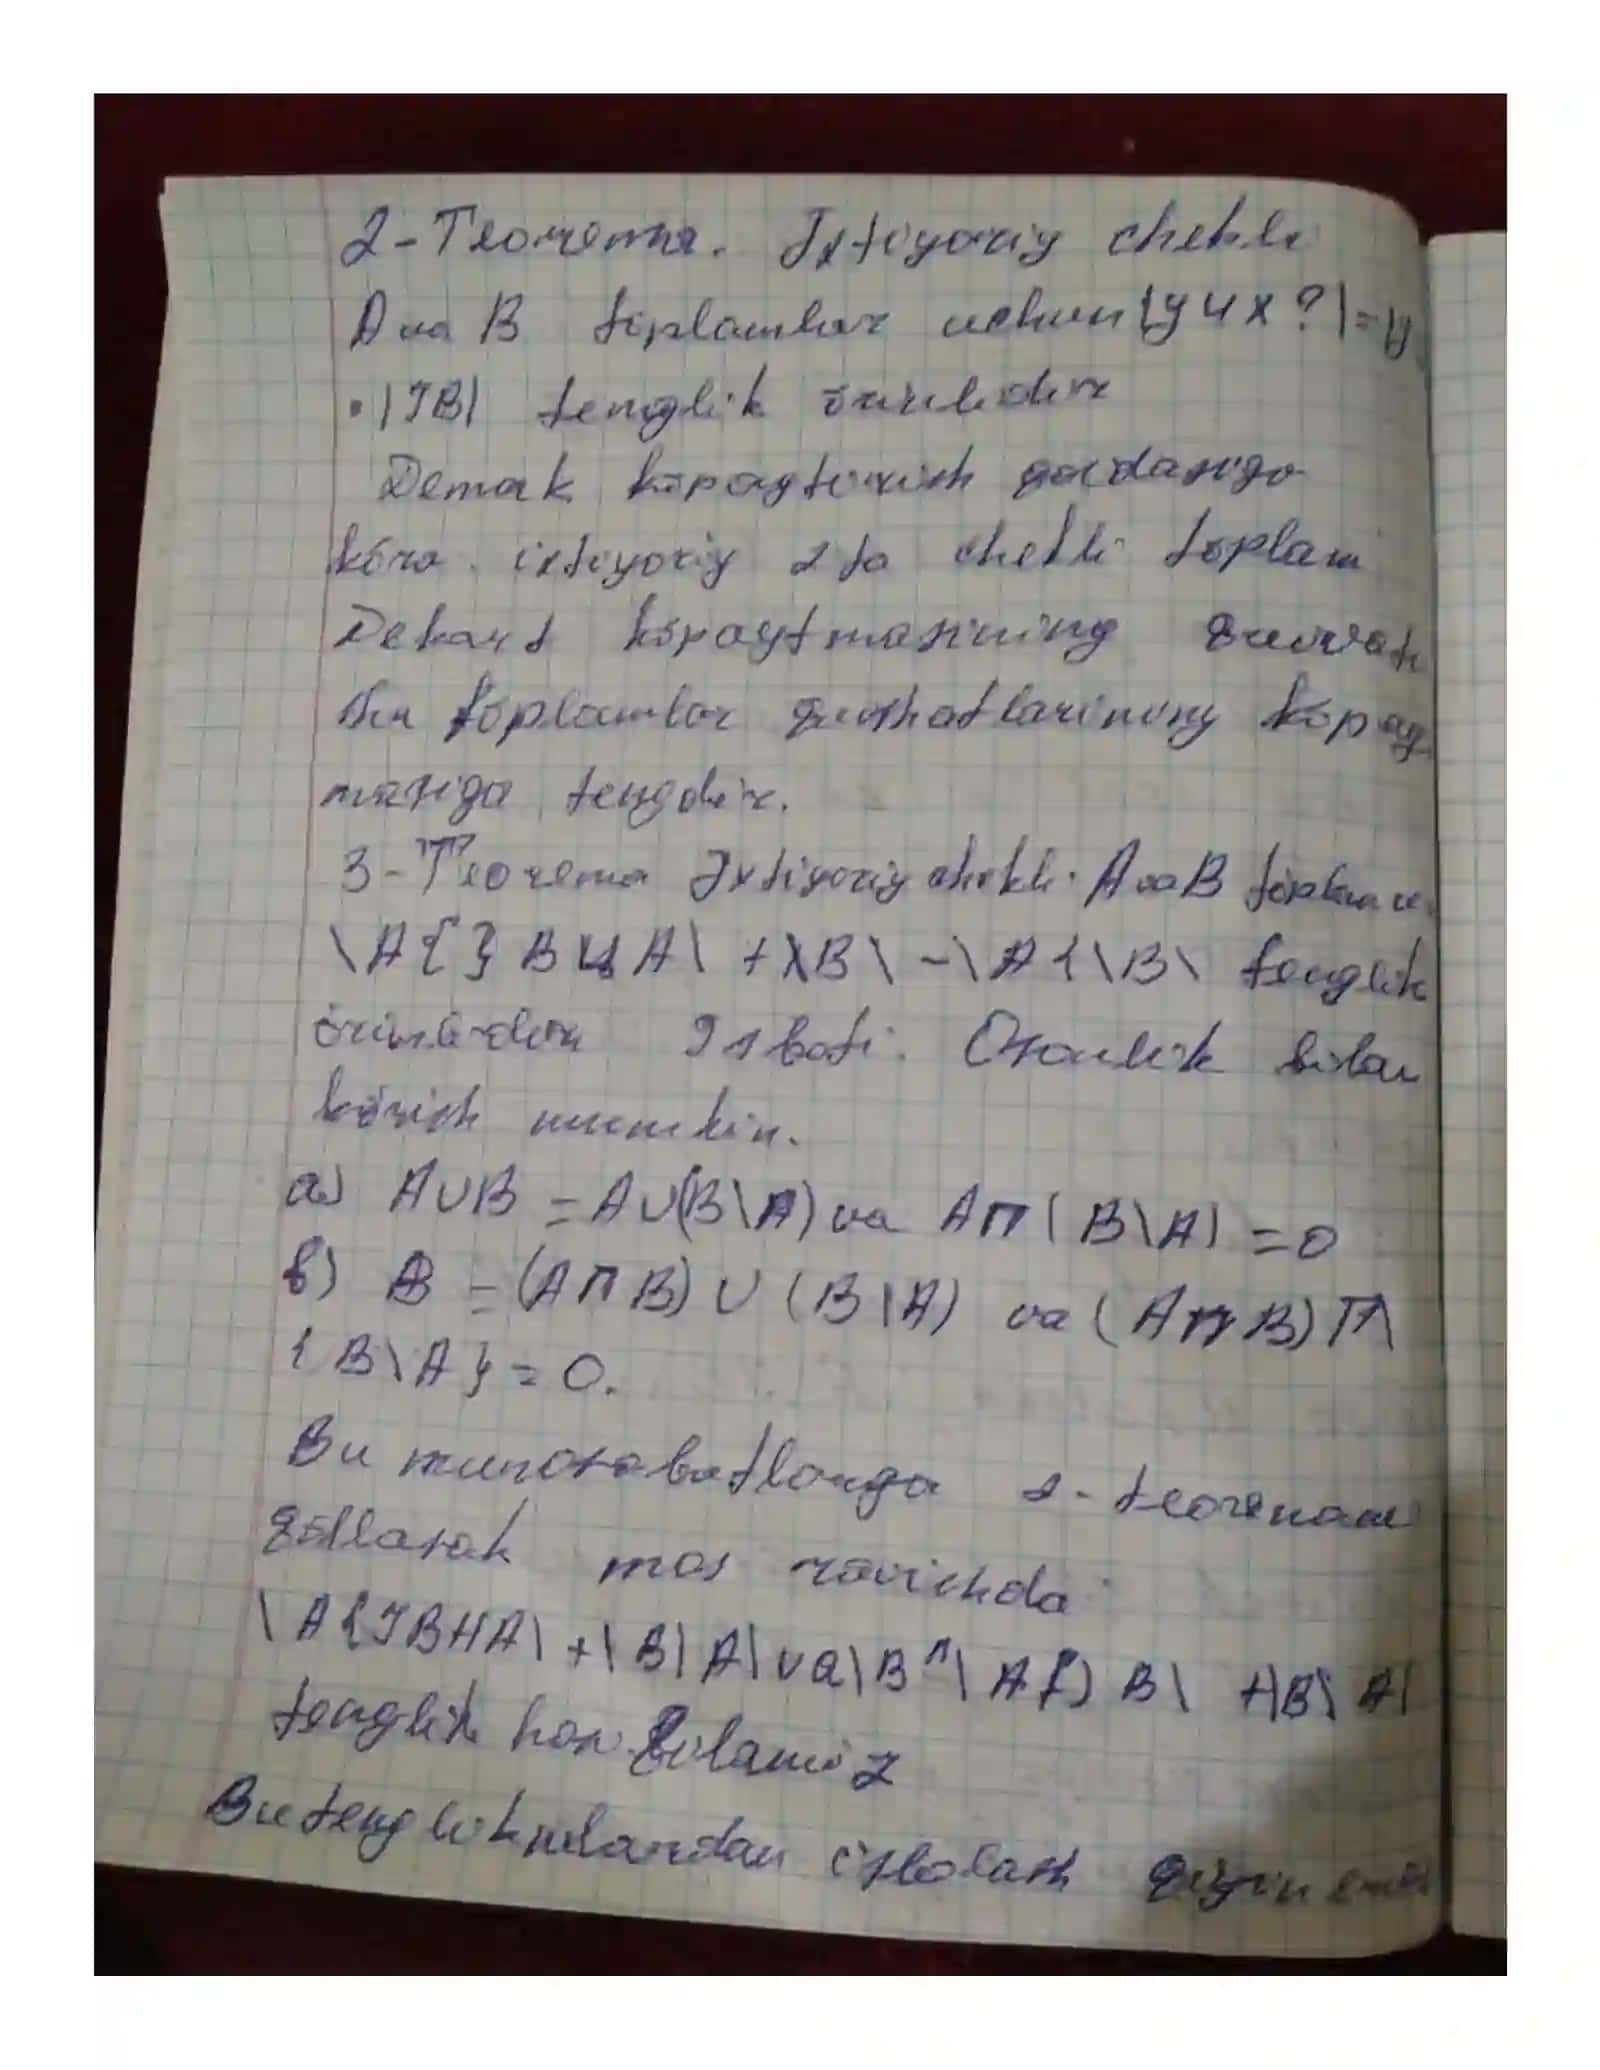 2-Teorema. Ixtiyoriy chekli
A va B tóplamlar uchun |У Ч X ? | = |У
• |JB| tenglik órinlidir
Demak kópaytirish qoidasiga
kóra ixtiyoriy 2 ta chekli tóplam
Dekart kópaytmasining quvvati
shu tóplamlar quvvatlarining kópay
masiga tengdir.
3-Teorema Ixtiyoriy chekli A va B tóplam u
\A{ } B Ч A\ + \B\ - \ A { \B\ tenglik
órinlidir Isboti. Osonlik bilan
kórish mumkin.
a) A∪B = A∪(B\A) va A∩( B\A) = 0
b) B = (A∩B) ∪ (B\A) va (A∩B)∩
{ B\A} = 0.
Bu munosabatlarga 1-teoremani
qóllasak mos ravishda
\A{JBHA\ + \ B\ A\ va \B^\ A{) B\ +|B\ A|
tenglik hosil qilamiz
Bu tengliknilardan isbotlash qiyin emas